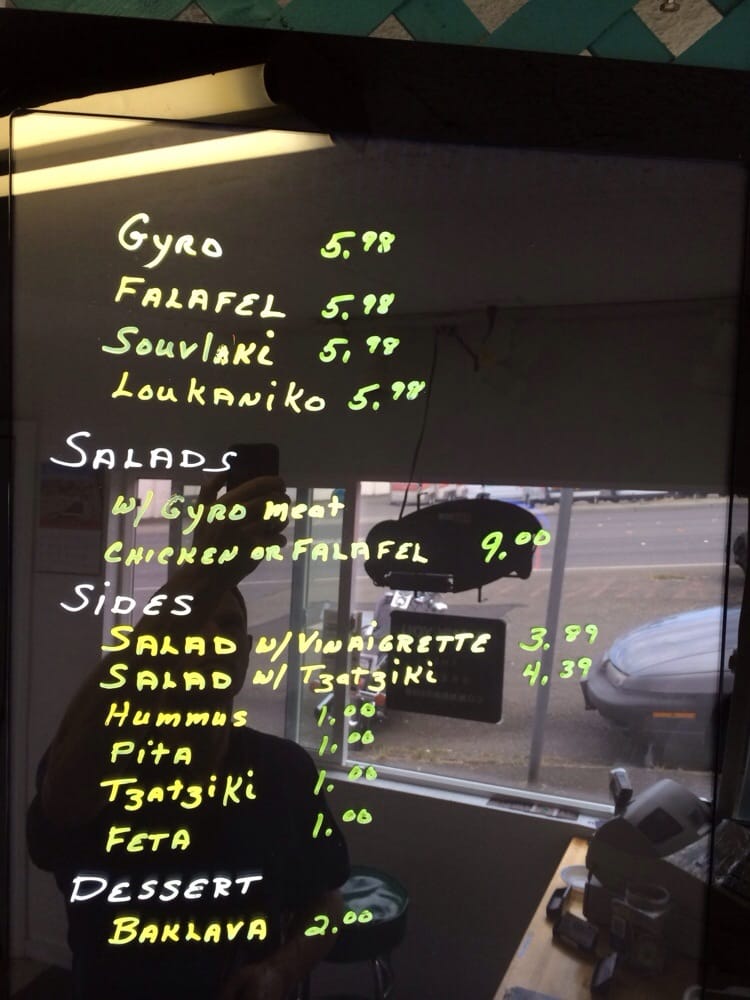 Gyro 5.98
FALAFEL 5.98
Souvlaki 5.98
LouKANiKo 5.98
SALADS
w/ Gyro meat
CHICKEN OR FALAFEL 9.00
SiDES
SALAD w/ VINAIGRETTE 3.89
SALAD w/ Tzatziki 4.39
Hummus 1.00
Pita 1.00
Tzatziki 1.00
FETA 1.00
DESSERT
BAKLAVA 2.00